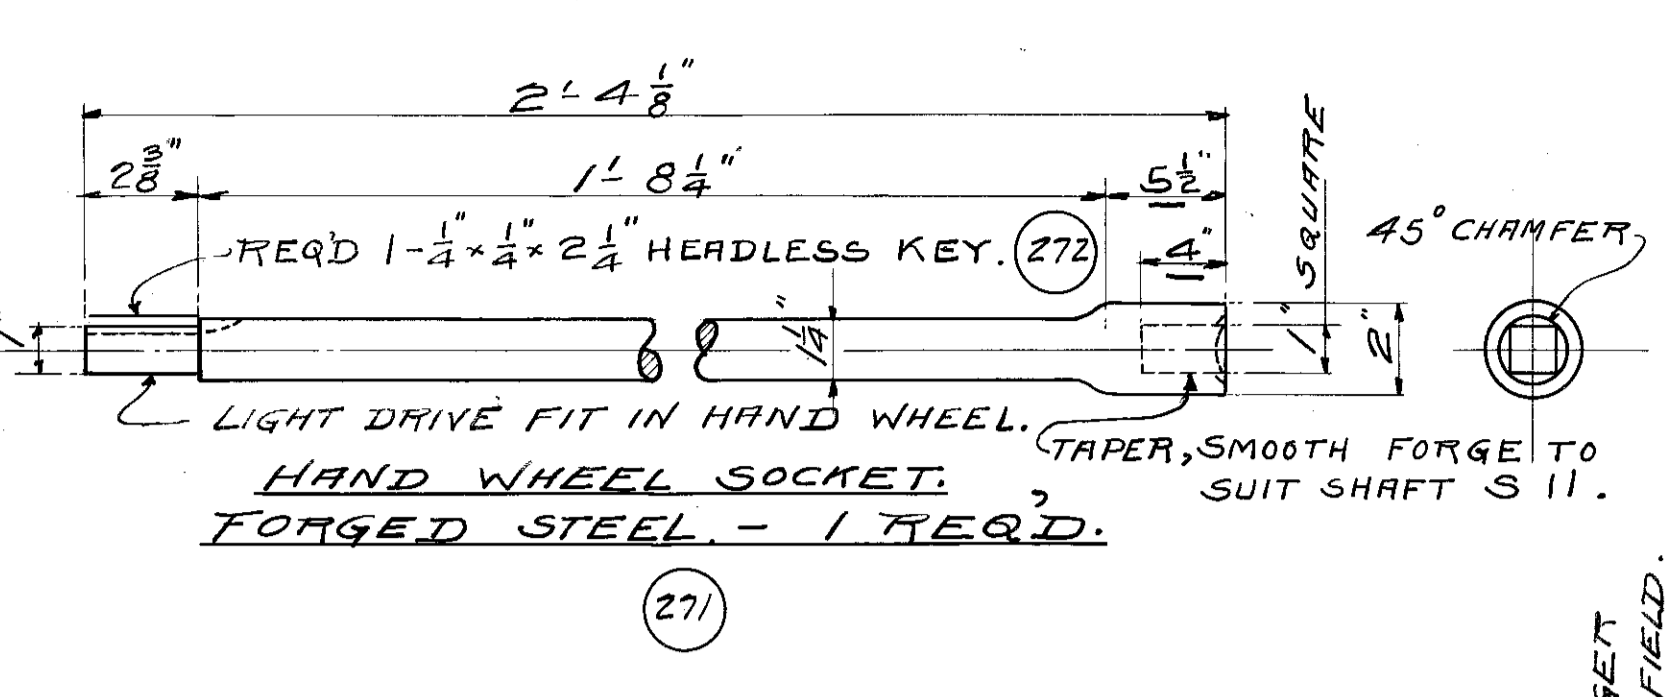 2'-4 1/8"
2 3/8"
1'-8 1/4"
5 1/2"
REQ'D 1-1/4"×1/4"×2 1/4" HEADLESS KEY. 272
4"
1" SQUARE
45° CHAMFER
1 1/4"
2"
LIGHT DRIVE FIT IN HAND WHEEL.
TAPER, SMOOTH FORGE TO
SUIT SHAFT S 11.
HAND WHEEL SOCKET.
FORGED STEEL. - 1 REQ'D.
271
FIELD.